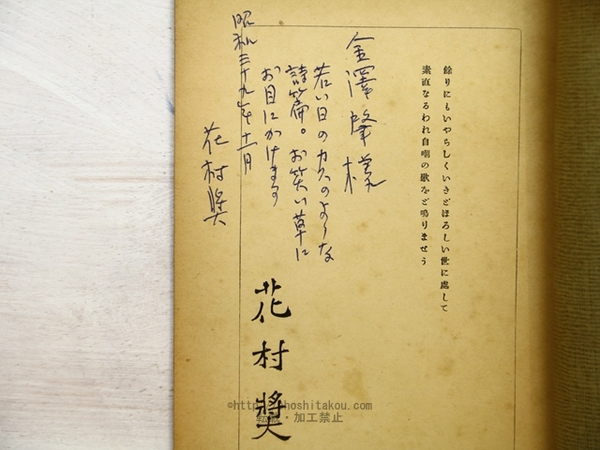 餘りにもいやらしくいきどほろしい世に處して
素直なるわれ自嘲の歌をど鳴りませう
金澤肇様
若い日のカスのような
詩篇。お笑い草に
お目にかけます
昭和三十九年十一月
花村奬
花村奬
©http
hoshitakou.com
転載・加工禁止